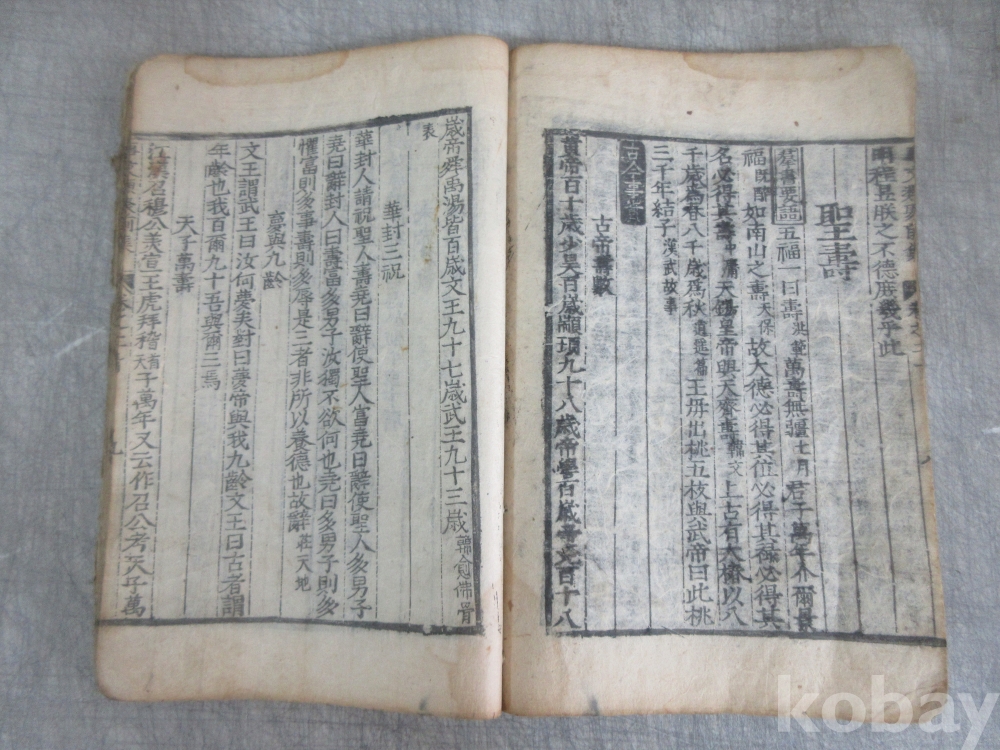 明程昱朕之不德庶幾乎此
聖壽
羣書要語 五福一曰壽 洪範 萬壽無疆 七月 君子萬年介爾景
福 既醉 如南山之壽 天保 故大德必得其位必得其祿必得其
名必得其壽 中庸 天錫皇帝與天齊壽 韓文 上古有大椿以八
千歲爲春八千歲爲秋 逍遙篇 王母出桃五枚與武帝曰此桃
三千年結子 漢武故事
古今事實
古帝壽數
黃帝百十歲少昊百歲顓頊九十八歲帝嚳百歲帝堯百十八
歲帝舜禹湯皆百歲文王九十七歲武王九十三歲 韓愈佛骨
表
華封三祝
華封人請祝聖人壽堯曰辭使聖人富堯曰辭使聖人多男子
堯曰辭封人曰壽富多男子汝獨不欲何也堯曰多男子則多
懼富則多事壽則多辱是三者非所以養德也故辭 莊天地
夢與九齡
文王謂武王曰汝何夢矣對曰夢帝與我九齡文王曰古者謂
年齡也我百爾九十吾與爾三焉
天子萬壽
江漢召穆公美宣王虎拜稽首天子萬年又云作召公考天子萬